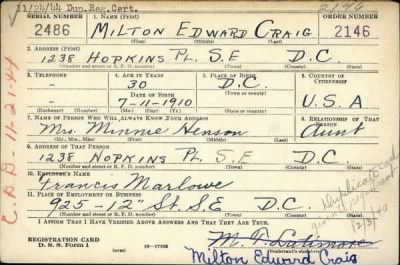 ✓ 11/24/44 Dup. Reg. Cert.
2146
SERIAL NUMBER 1. NAME (Print) ORDER NUMBER
2486 MILTON EDWARD CRAIG 2146
(First) (Middle) (Last)
2. ADDRESS (Print)
1238 HOPKINS PL. S.E D.C.
(Number and street or R. F. D. number) (Town) (County) (State)
3. TELEPHONE 4. AGE IN YEARS 5. PLACE OF BIRTH 6. COUNTRY OF CITIZENSHIP
- 30 D.C.
DATE OF BIRTH (Town or county)
- 7-11-1910 U.S.A
(Exchange) (Number) (Mo.) (Day) (Yr.) (State or country)
7. NAME OF PERSON WHO WILL ALWAYS KNOW YOUR ADDRESS 8. RELATIONSHIP OF THAT PERSON
Mrs. Minnie Henson Aunt
(Mr., Mrs., Miss) (First) (Middle) (Last)
9. ADDRESS OF THAT PERSON
1238 HOPKINS PL. S.E D.C.
(Number and street or R. F. D. number) (Town) (County) (State)
10. EMPLOYER'S NAME
Francis Marlowe
11. PLACE OF EMPLOYMENT OR BUSINESS
925-12" St. S.E D.C.
(Number and street or R. F. D. number) (Town) (County) (State)
I AFFIRM THAT I HAVE VERIFIED ABOVE ANSWERS AND THAT THEY ARE TRUE.
REGISTRATION CARD
D. S. S. Form 1 (over) 16-17105
(Registrant's signature)
Milton Edward Craig
C.A.D. 11-21-44
Duplicate card
12/3/40